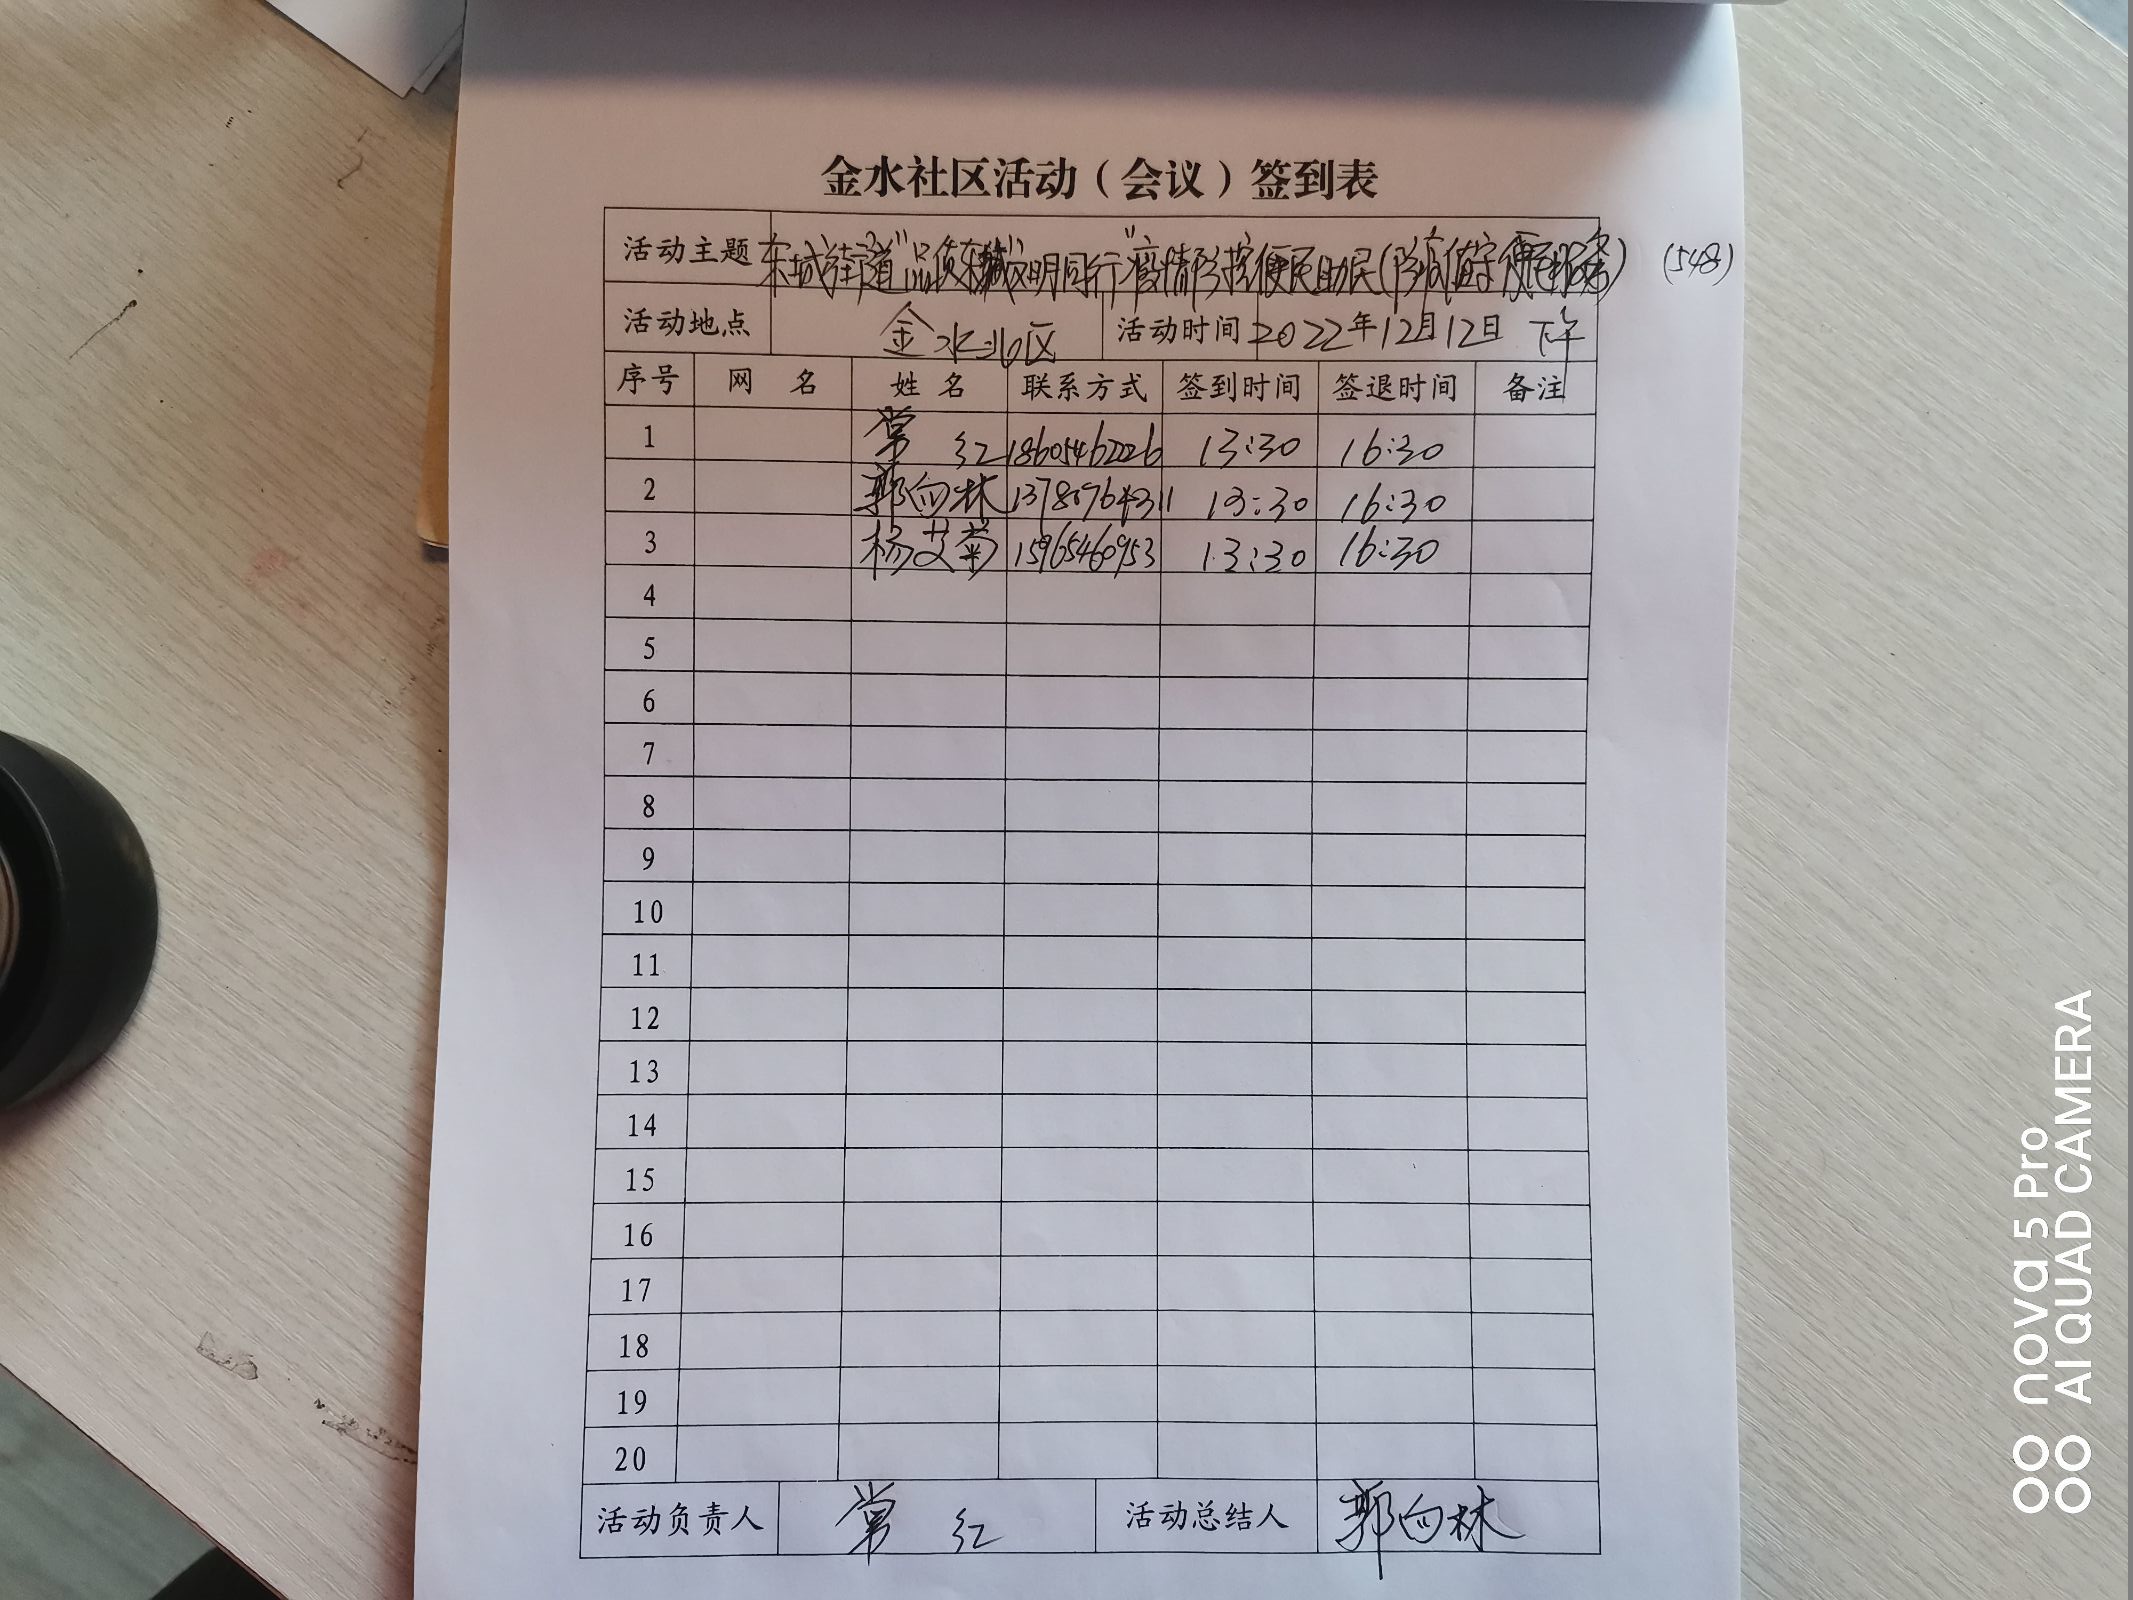 金水社区活动（会议）签到表
活动主题 东城街道"品质东城文明同行"疫情防控便民助民(防疫值守便民服务) (548)
活动地点 金水北区 活动时间 2022年12月12日 下午
序号 网 名 姓 名 联系方式 签到时间 签退时间 备注
1 常 红 18605462226 13:30 16:30
2 郭向林 13780764311 13:30 16:30
3 杨艾菊 15965460953 13:30 16:30
4
5
6
7
8
9
10
11
12
13
14
15
16
17
18
19
20
活动负责人 常 红 活动总结人 郭向林
nova 5 Pro
AI QUAD CAMERA